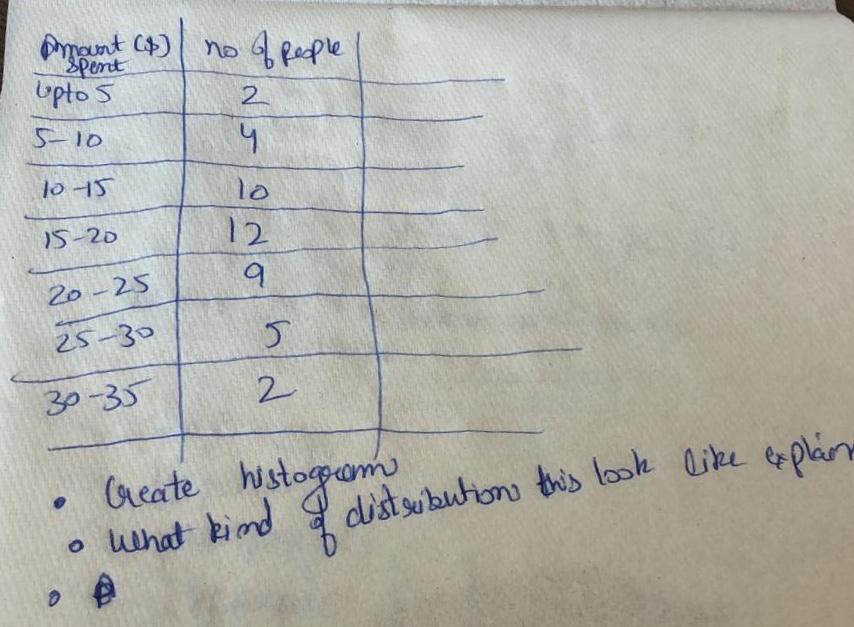 Amount ($) Spent no of people
Upto 5 2
5-10 4
10-15 10
15-20 12
20-25 9
25-30 5
30-35 2
• Create histogram
• What kind of distribution this look like explain
•